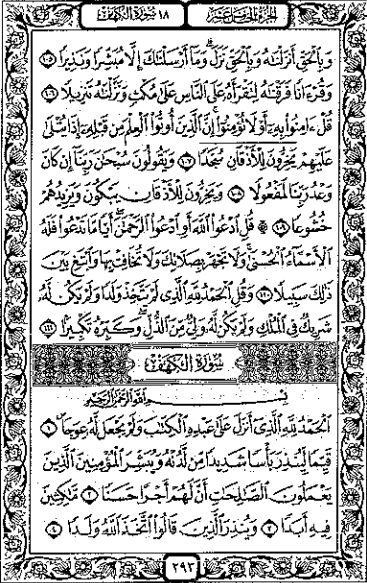 الجزء الخامس عشر ١٨ سورة الكهف
وَبِالْحَقِّ أَنزَلْنَاهُ وَبِالْحَقِّ نَزَلَ وَمَا أَرْسَلْنَاكَ إِلَّا مُبَشِّرًا وَنَذِيرًا ١٠٥
وَقُرْءَانًا فَرَقْنَاهُ لِتَقْرَأَهُ عَلَى النَّاسِ عَلَىٰ مُكْثٍ وَنَزَّلْنَاهُ تَنزِيلًا ١٠٦
قُلْ ءَامِنُوا بِهِ أَوْ لَا تُؤْمِنُوا إِنَّ الَّذِينَ أُوتُوا الْعِلْمَ مِن قَبْلِهِ إِذَا يُتْلَىٰ
عَلَيْهِمْ يَخِرُّونَ لِلْأَذْقَانِ سُجَّدًا ١٠٧ وَيَقُولُونَ سُبْحَانَ رَبِّنَا إِن كَانَ
وَعْدُ رَبِّنَا لَمَفْعُولًا ١٠٨ وَيَخِرُّونَ لِلْأَذْقَانِ يَبْكُونَ وَيَزِيدُهُمْ
خُشُوعًا ١٠٩ قُلِ ادْعُوا اللَّهَ أَوِ ادْعُوا الرَّحْمَٰنَ أَيًّا مَّا تَدْعُوا فَلَهُ
الْأَسْمَاءُ الْحُسْنَىٰ وَلَا تَجْهَرْ بِصَلَاتِكَ وَلَا تُخَافِتْ بِهَا وَابْتَغِ بَيْنَ
ذَٰلِكَ سَبِيلًا ١١٠ وَقُلِ الْحَمْدُ لِلَّهِ الَّذِي لَمْ يَتَّخِذْ وَلَدًا وَلَمْ يَكُن لَّهُ
شَرِيكٌ فِي الْمُلْكِ وَلَمْ يَكُن لَّهُ وَلِيٌّ مِّنَ الذُّلِّ وَكَبِّرْهُ تَكْبِيرًا ١١١
سورة الكهف
بِسْمِ اللَّهِ الرَّحْمَٰنِ الرَّحِيمِ
الْحَمْدُ لِلَّهِ الَّذِي أَنزَلَ عَلَىٰ عَبْدِهِ الْكِتَابَ وَلَمْ يَجْعَل لَّهُ عِوَجًا ١
قَيِّمًا لِّيُنذِرَ بَأْسًا شَدِيدًا مِّن لَّدُنْهُ وَيُبَشِّرَ الْمُؤْمِنِينَ الَّذِينَ
يَعْمَلُونَ الصَّالِحَاتِ أَنَّ لَهُمْ أَجْرًا حَسَنًا ٢ مَّاكِثِينَ
فِيهِ أَبَدًا ٣ وَيُنذِرَ الَّذِينَ قَالُوا اتَّخَذَ اللَّهُ وَلَدًا ٤
٢٩٣